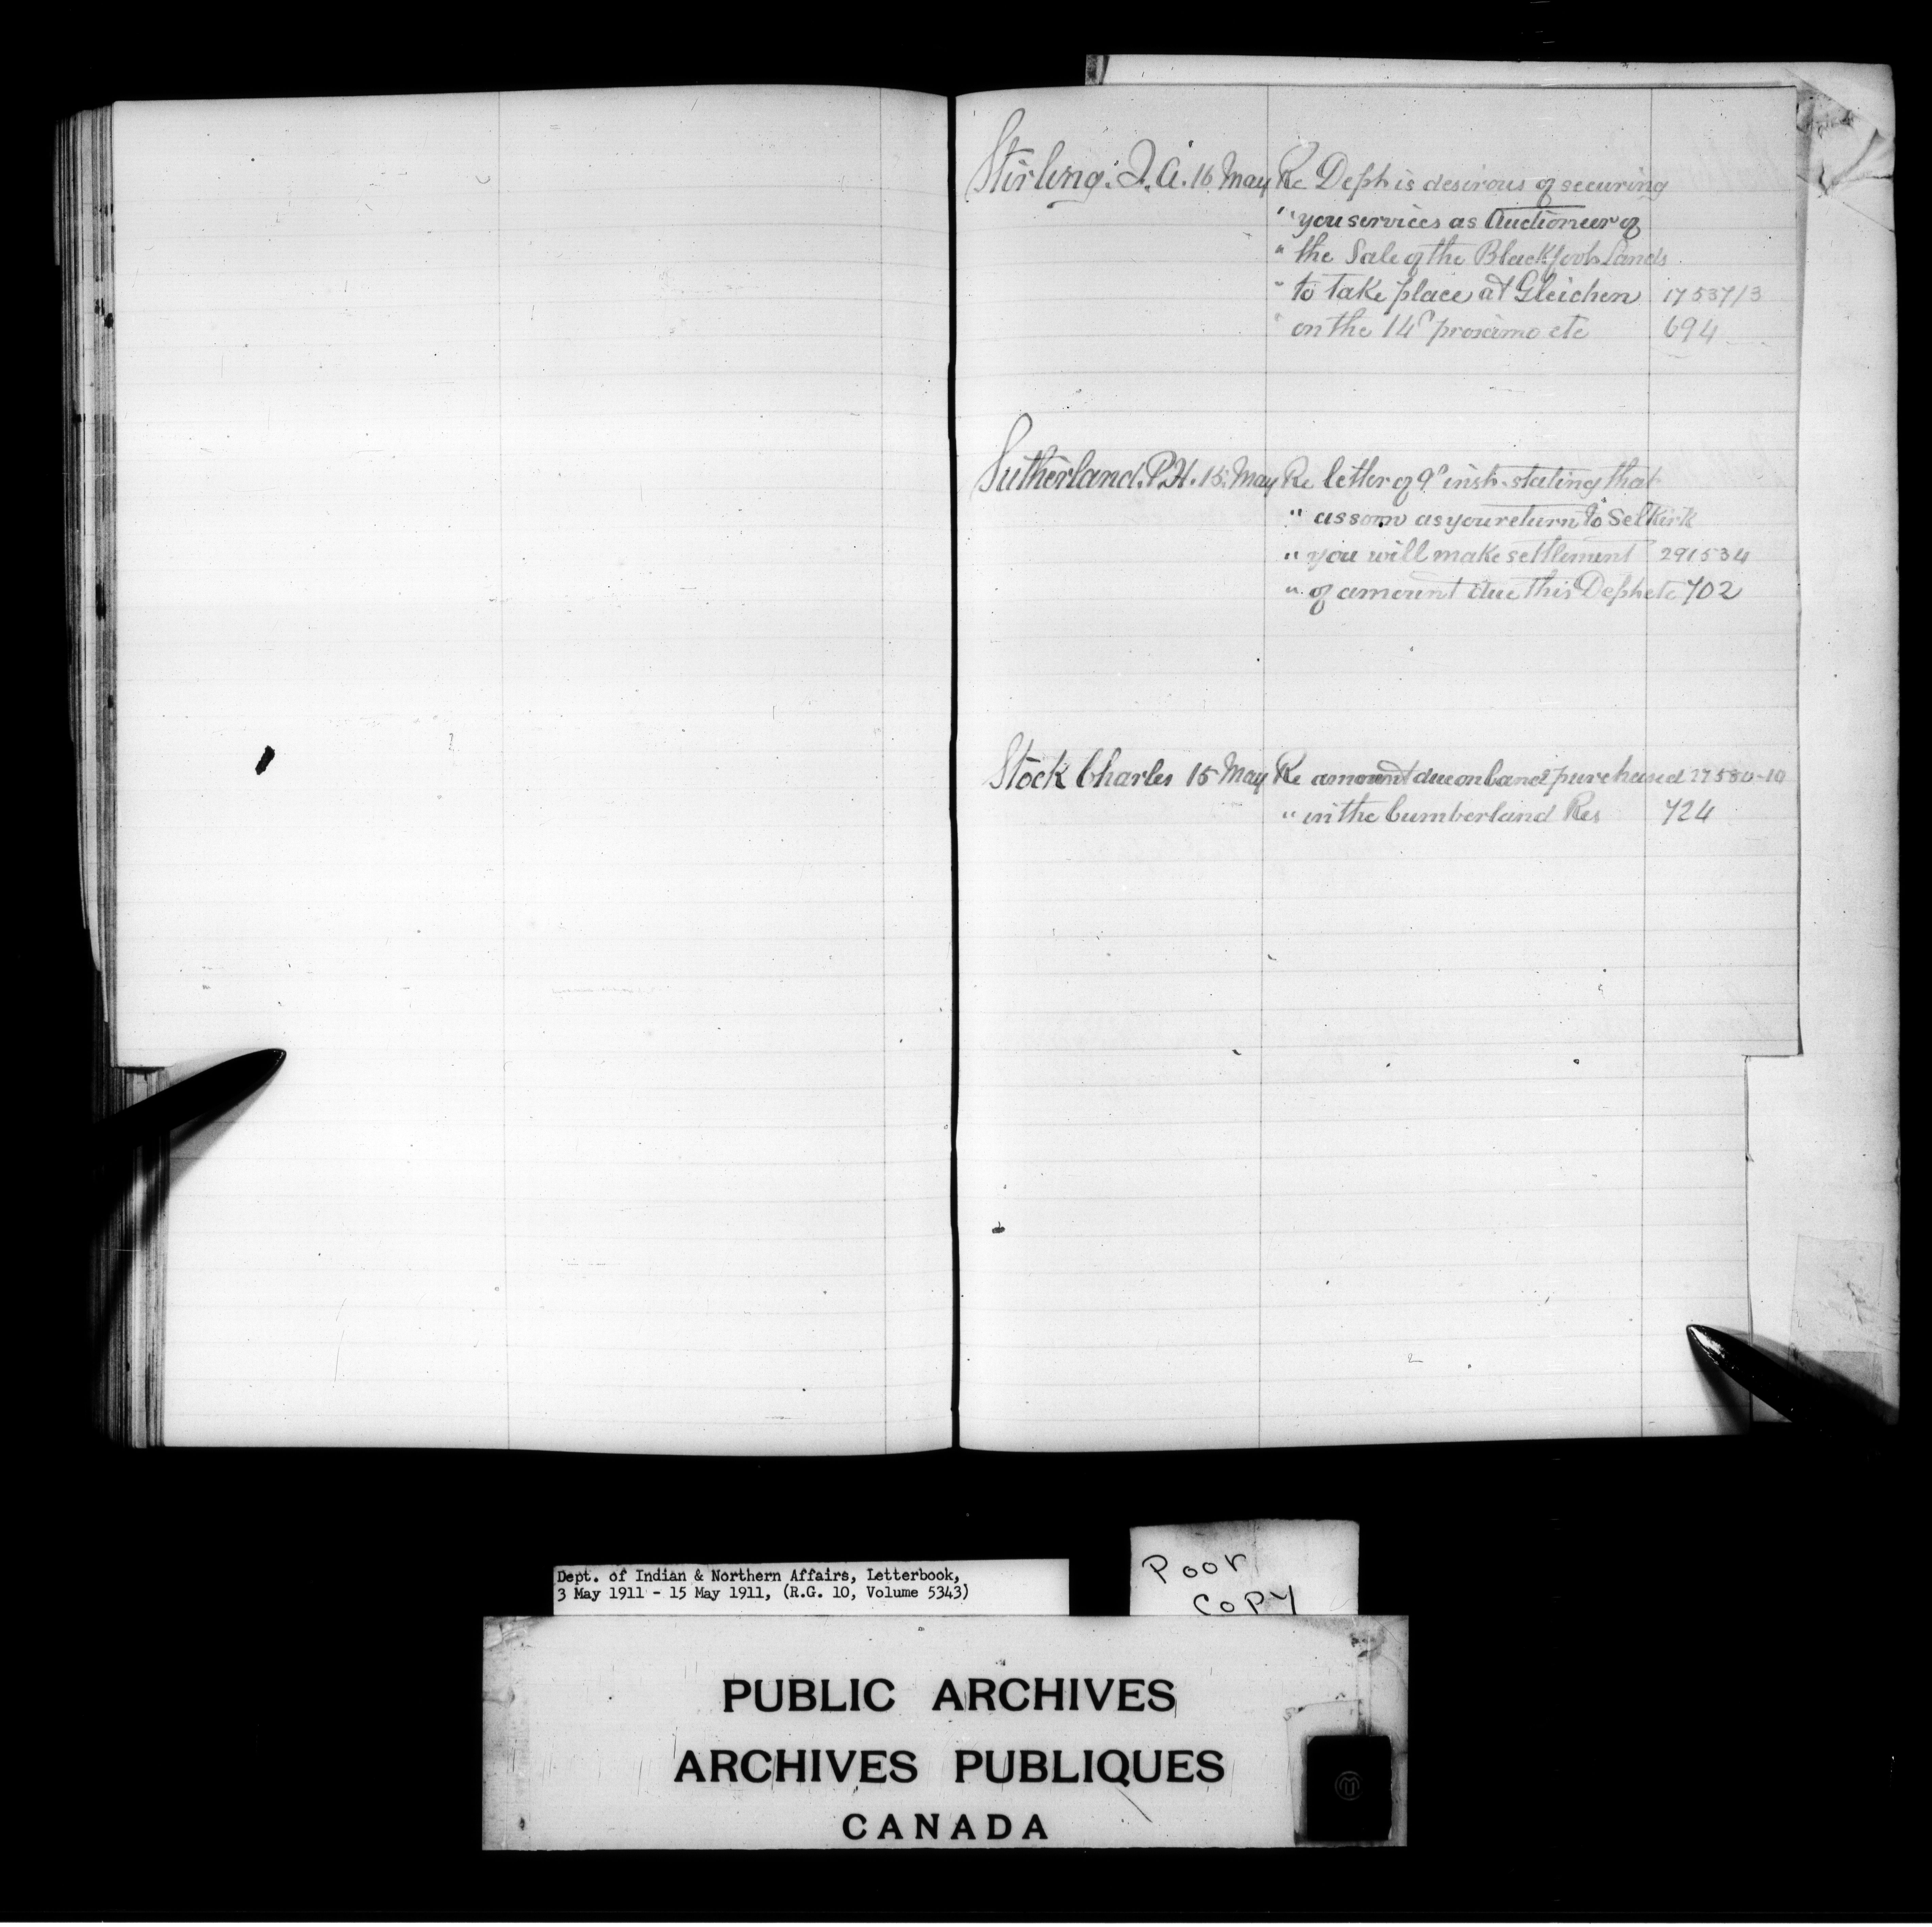 Stirling. J. A. 16 May Re Dept is desirous of securing
" you services as Auctioneer of
" the Sale of the Blackfoot Lands
" to take place at Gleichen 17537/3
" on the 14th proximo etc 694
Sutherland. P. H. 15. May Re letter of 9th inst. stating that
" as soon as you return to Selkirk
" you will make settlement 291534
" of amount due this Dept etc 702
Stock Charles 15 May Re amount due on land purchased 27580-10
" in the Cumberland Res 724
Dept. of Indian & Northern Affairs, Letterbook,
3 May 1911 - 15 May 1911, (R.G. 10, Volume 5343)
Poor
Copy
PUBLIC ARCHIVES
ARCHIVES PUBLIQUES
CANADA